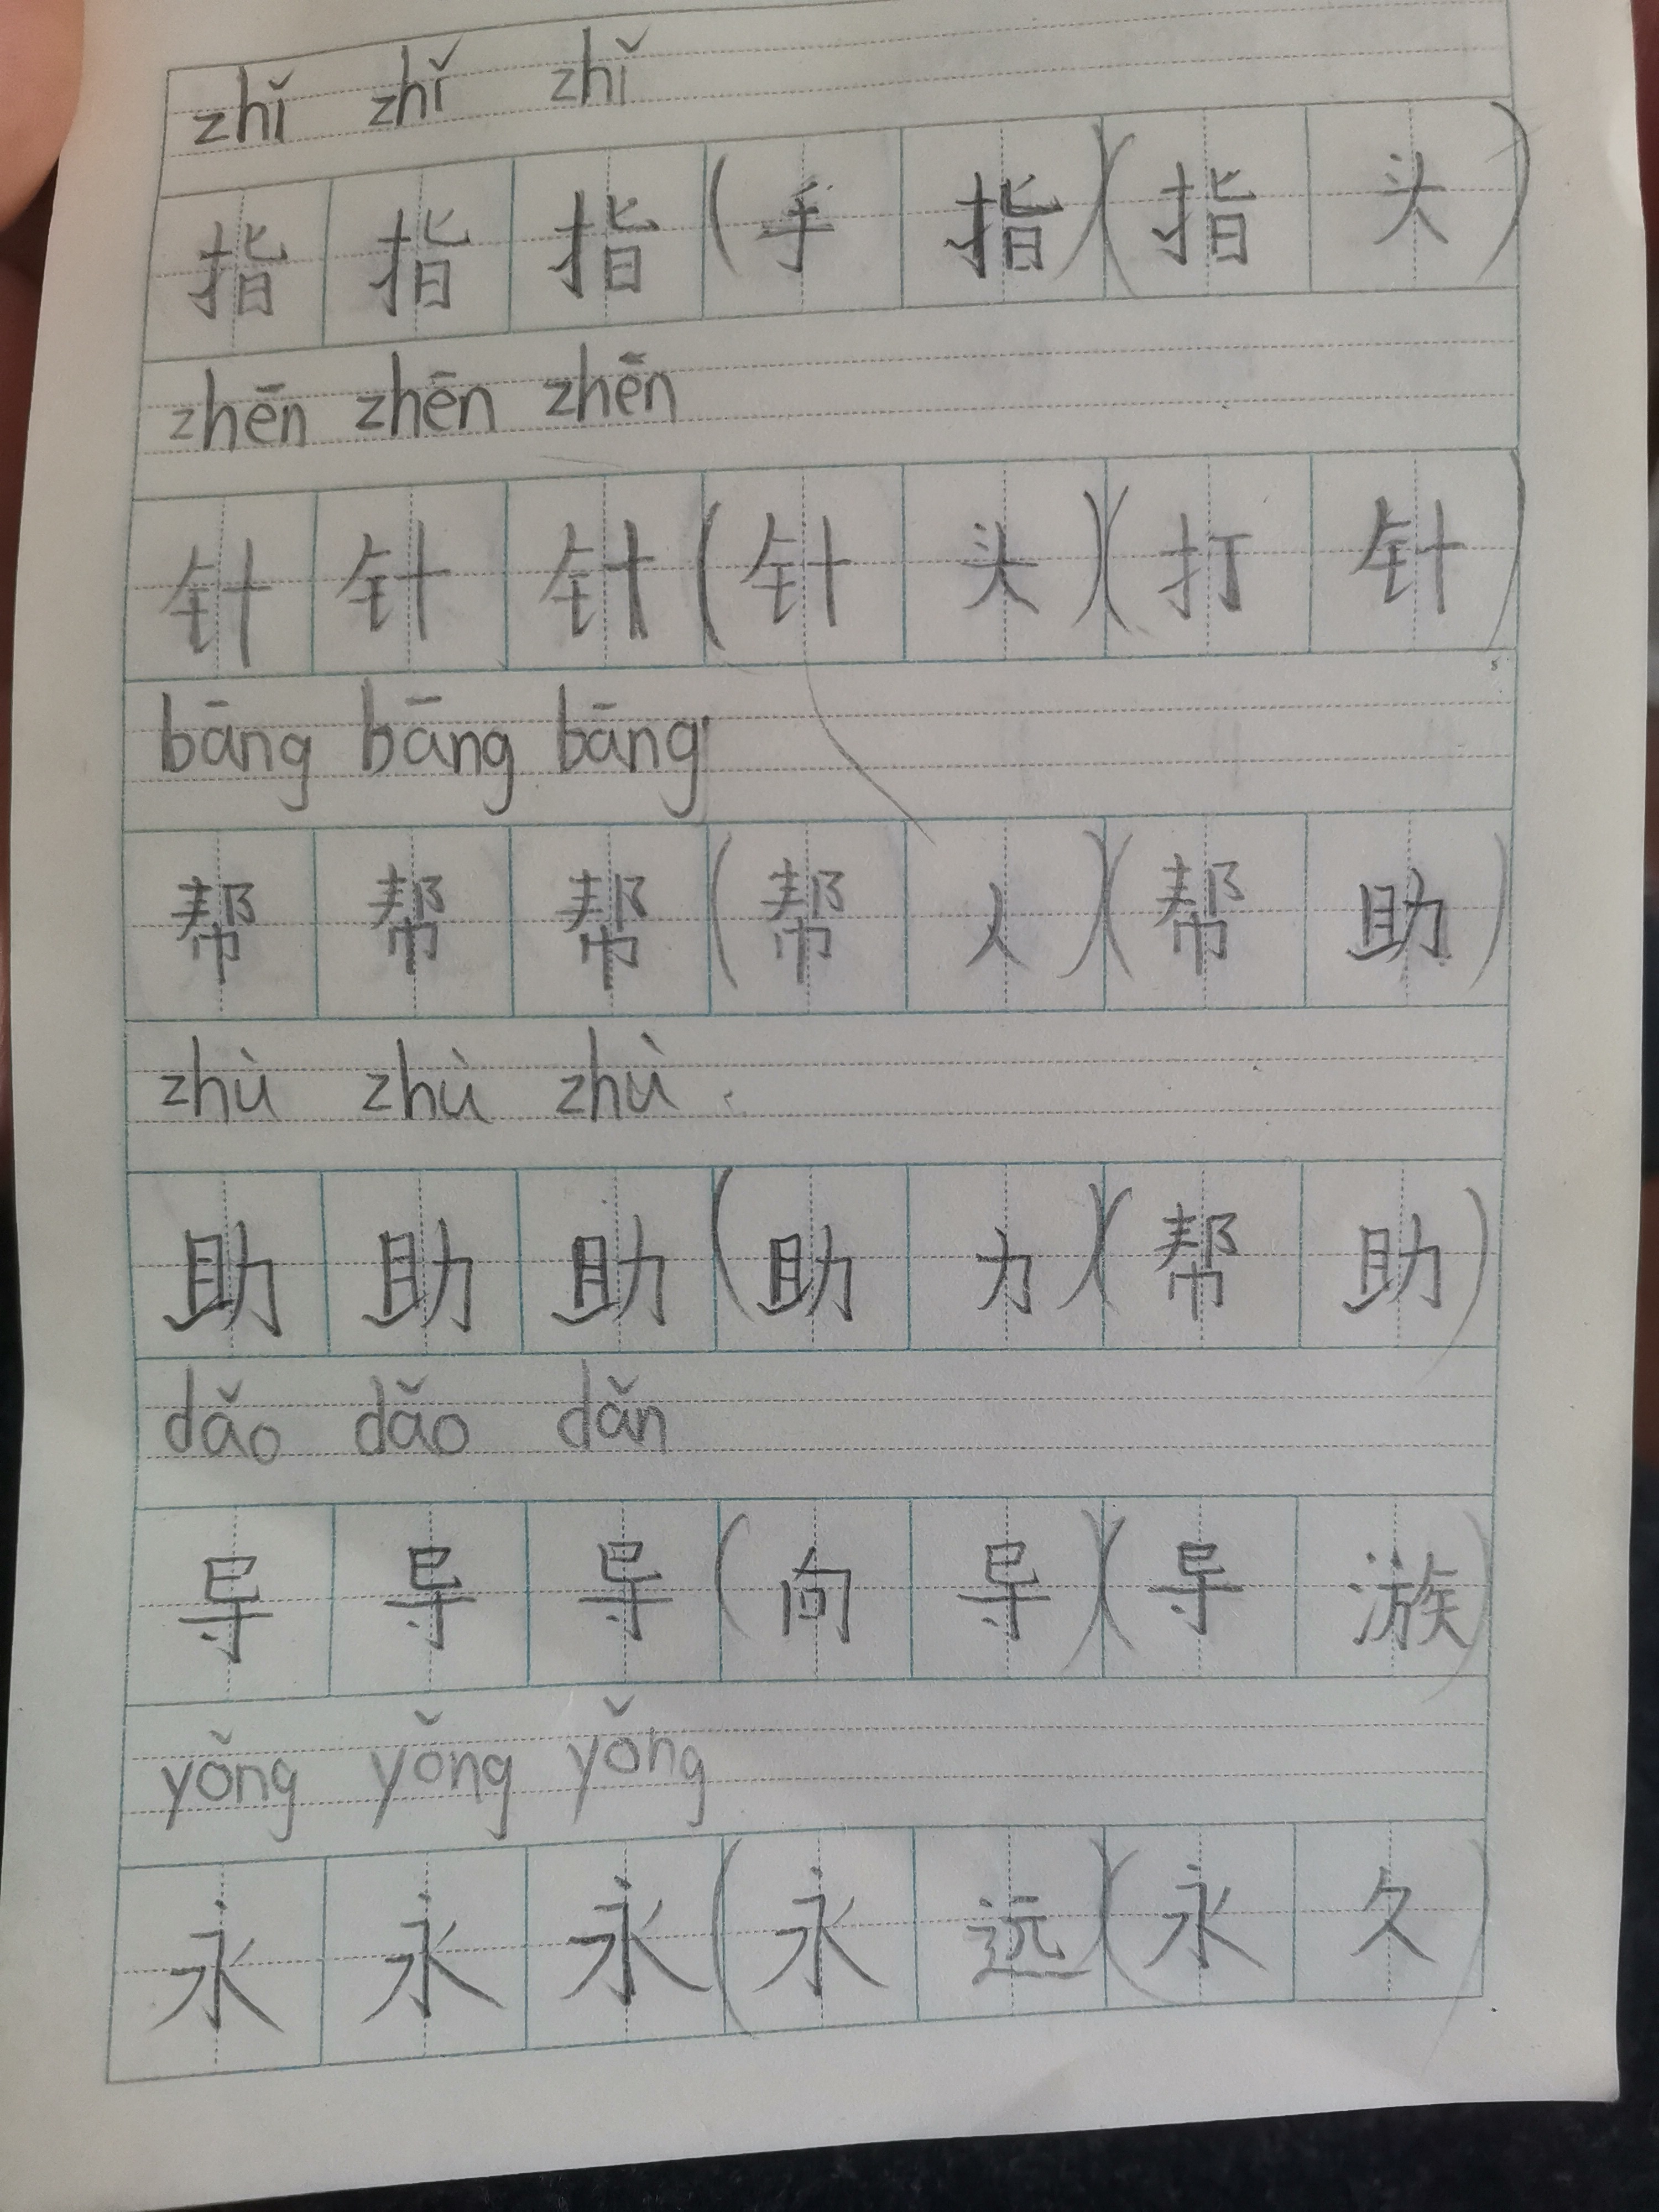 zhǐ zhǐ zhǐ
指 指 指 (手 指)(指 头)
zhēn zhēn zhēn
针 针 针 (针 头)(打 针)
bāng bāng bāng
帮 帮 帮 (帮 人)(帮 助)
zhù zhù zhù
助 助 助 (助 力)(帮 助)
dǎo dǎo dǎn
导 导 导 (向 导)(导 游)
yǒng yǒng yǒng
永 永 永 (永 远)(永 久)